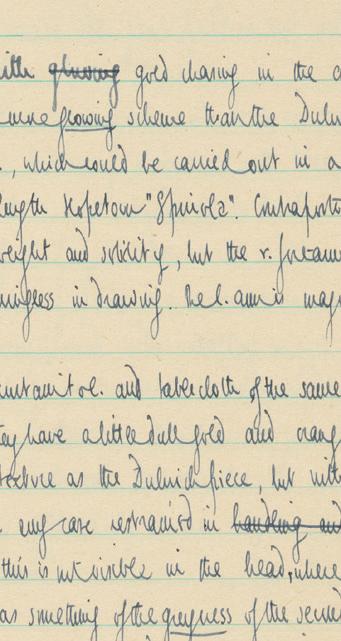 with glowing gold chasing in the
glowing scheme than the Dulw
, which could be carried out in a
length Hopetoun "Spinola". Contraposto
weight and solidity, but the r. forearm
in drawing. The l. arm is
and tablecloth of the same
they have a little dull gold and
texture as the Dulwich piece, but with
any case restrained in handling and
this is not visible in the head, where
as something of the greyness of the second